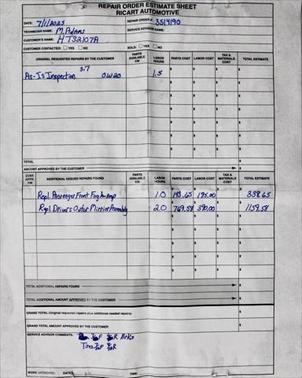 REPAIR ORDER ESTIMATE SHEET
RICART AUTOMOTIVE
DATE: 7/1/2025 REPAIR ORDER #: 3514190
TECHNICIAN NAME: M. Adams SERVICE ADVISOR NAME:
CUSTOMER'S NAME: HT32107A
CUSTOMER CONTACTED: YES NO SOLD: YES NO
ORIGINAL REQUESTED REPAIRS BY THE CUSTOMER PARTS AVAILABLE Y/N LABOR HOURS PARTS COST LABOR COST TAX & MATERIALS COST TOTAL ESTIMATE
5.7
As-Is Inspection 0W20 1.5
TOTAL
AMOUNT APPROVED BY THE CUSTOMER
ADDITIONAL ISSUES/REPAIRS FOUND PARTS AVAILABLE Y/N LABOR HOURS PARTS COST LABOR COST TAX & MATERIALS COST TOTAL ESTIMATE
Repl Passenger Front Fog Lamp 1.0 143.65 195.00 338.65
Repl Drivers Outer Mirror Assembly 2.0 769.58 390.00 1159.58
TOTAL ADDITIONAL REPAIRS FOUND
TOTAL ADDITIONAL AMOUNT APPROVED BY THE CUSTOMER
GRAND TOTAL
GRAND TOTAL AMOUNT APPROVED BY THE CUSTOMER
SERVICE ADVISOR COMMENTS:
WORK AUTHORIZED: DATE: